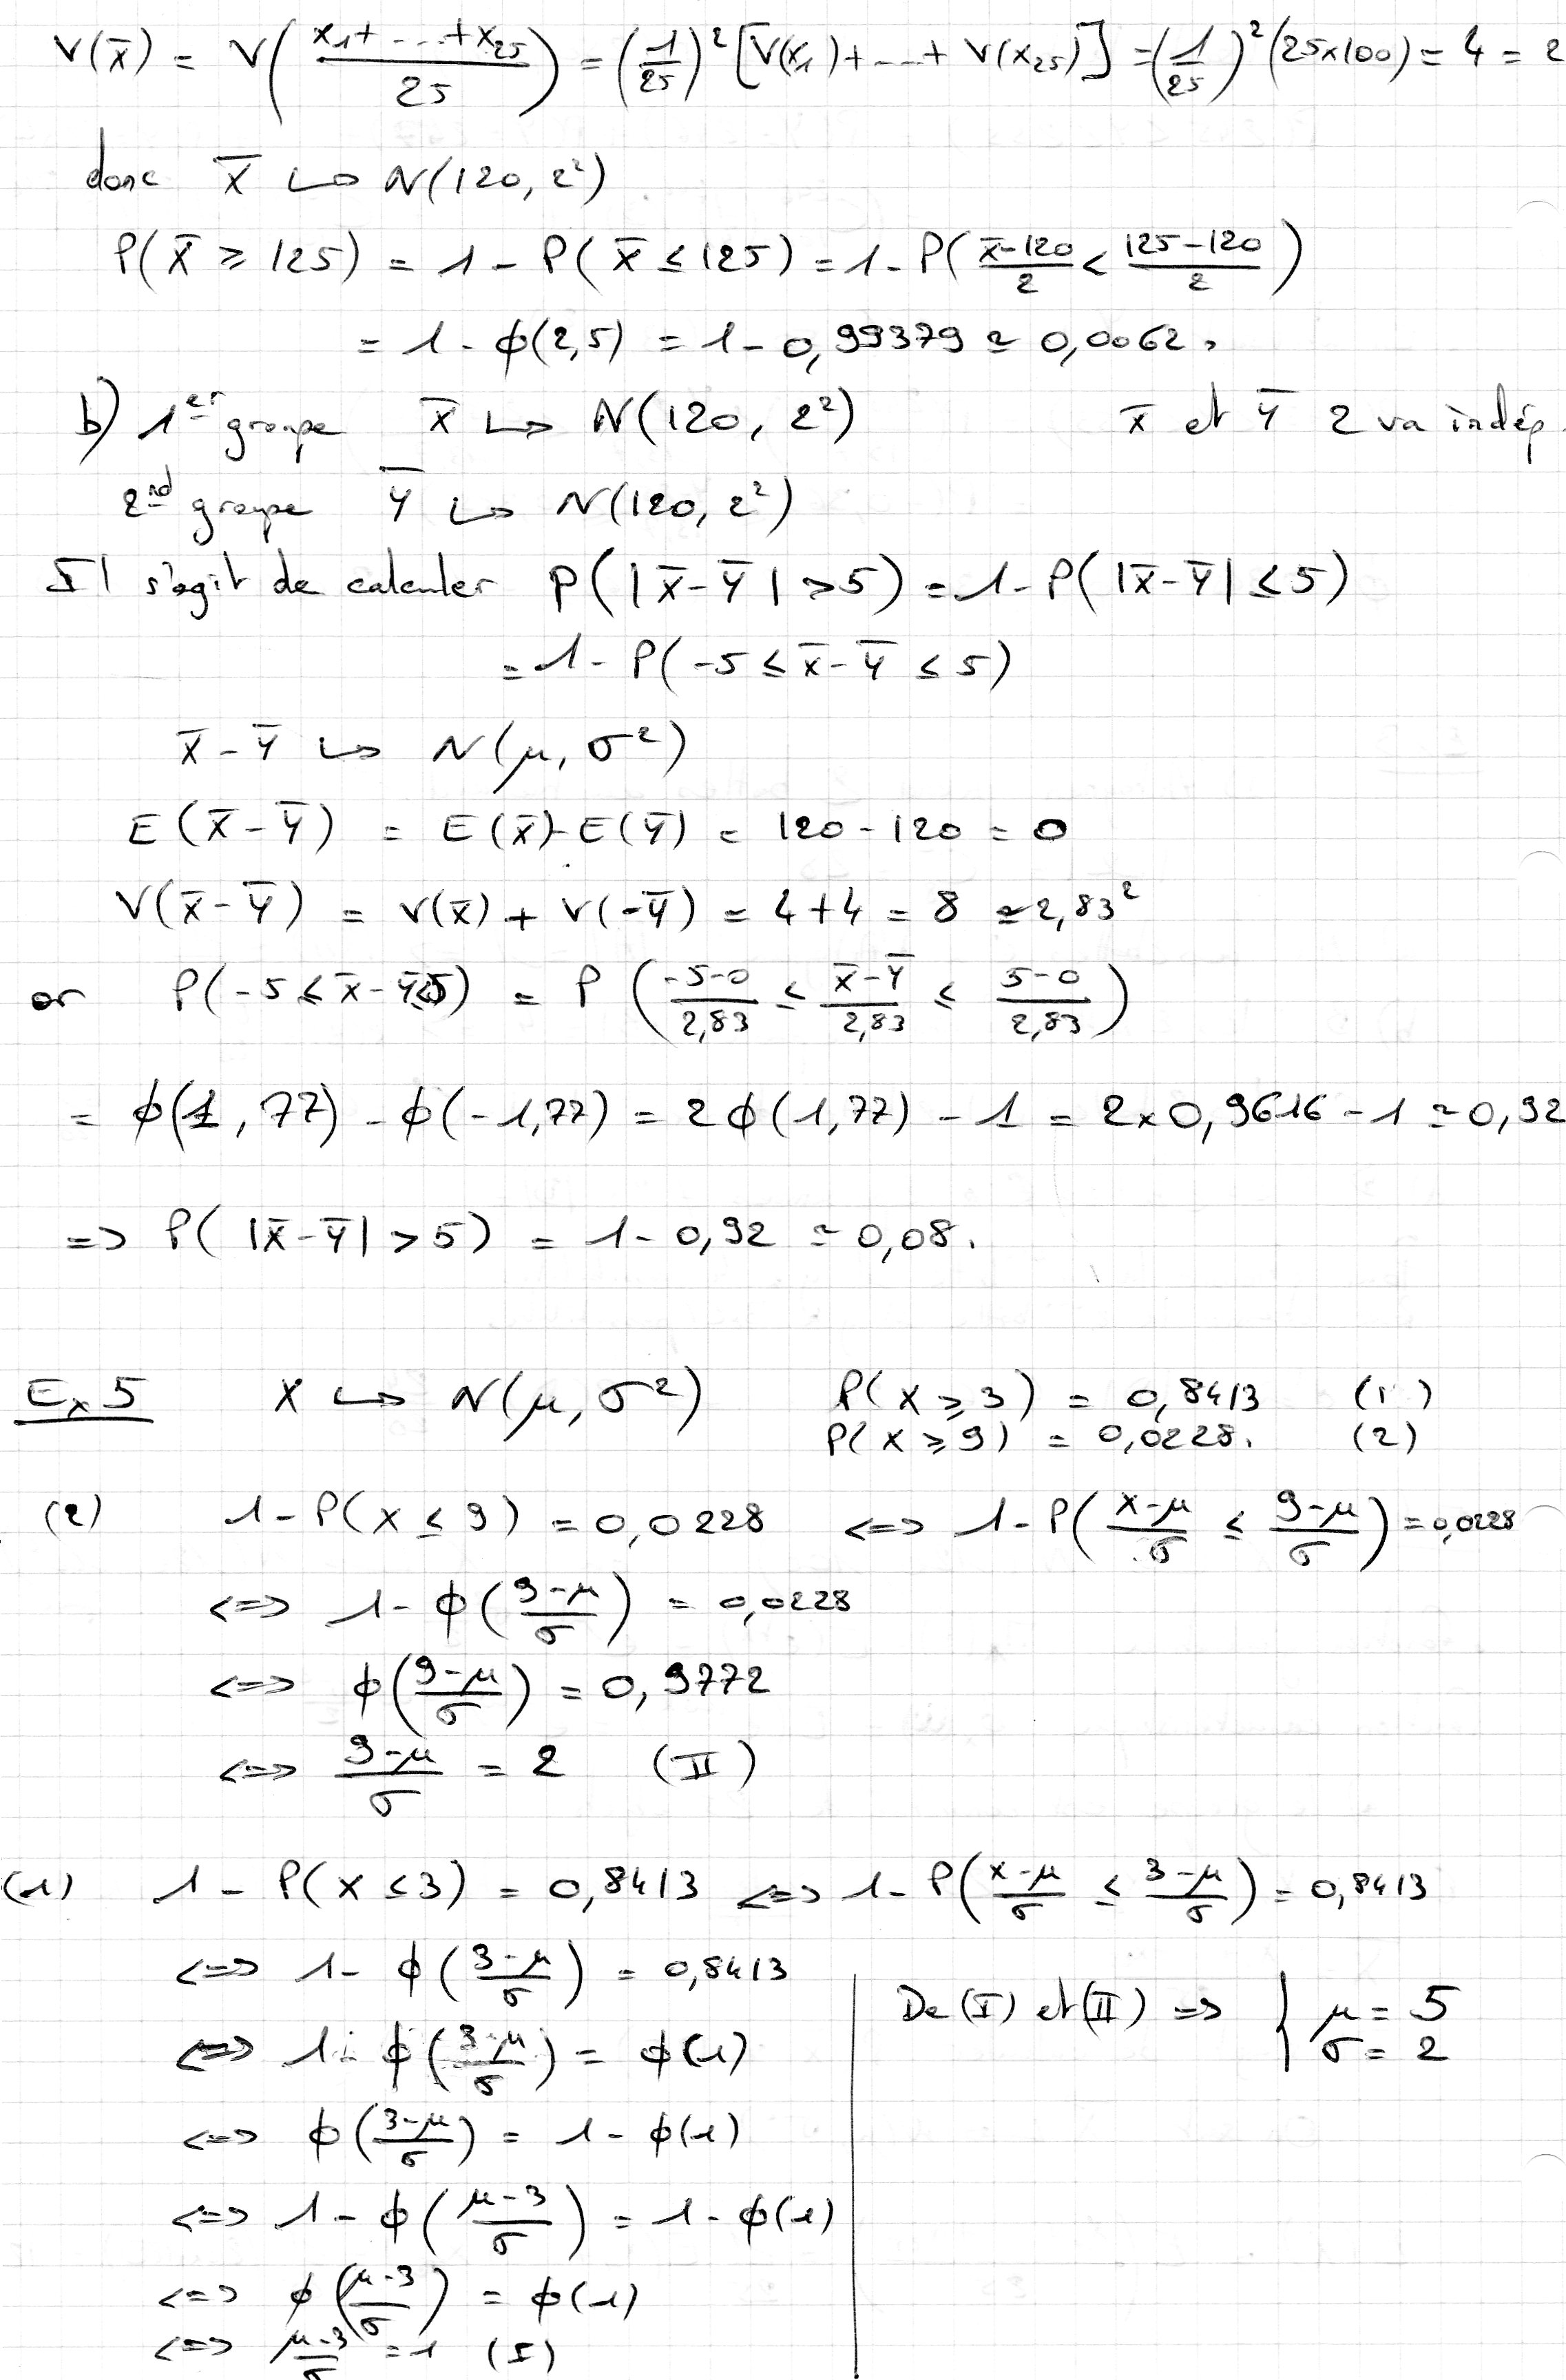 V(x̄) = V((x₁+ ... +x₂₅)/25) = (1/25)² [V(x₁)+ ... + V(x₂₅)] = (1/25)² (25×100) = 4 = 2
donc X̄ ↪ N(120, 2²)
P(X̄ ≥ 125) = 1 - P(X̄ ≤ 125) = 1 - P((x̄-120)/2 < (125-120)/2)
= 1 - ϕ(2,5) = 1 - 0,99379 ≃ 0,0062.
b) 1er groupe X̄ ↪ N(120, 2²) X̄ et Ȳ 2 va indép.
2nd groupe Ȳ ↪ N(120, 2²)
Il s'agit de calculer P(|X̄-Ȳ| > 5) = 1 - P(|X̄-Ȳ| ≤ 5)
= 1 - P(-5 ≤ X̄-Ȳ ≤ 5)
X̄-Ȳ ↪ N(μ, σ²)
E(X̄-Ȳ) = E(X̄)-E(Ȳ) = 120-120 = 0
V(X̄-Ȳ) = V(X̄) + V(-Ȳ) = 4+4 = 8 ≃ 2,83²
or P(-5 ≤ X̄-Ȳ ≤ 5) = P((-5-0)/2,83 ≤ (X̄-Ȳ)/2,83 ≤ (5-0)/2,83)
= ϕ(1,77) - ϕ(-1,77) = 2ϕ(1,77) - 1 = 2×0,9616 - 1 ≃ 0,92
=> P(|X̄-Ȳ| > 5) = 1 - 0,92 ≃ 0,08.
Ex 5 X ↪ N(μ, σ²) P(X ≥ 3) = 0,8413 (1)
P(X ≥ 9) = 0,0228. (2)
(2) 1 - P(X ≤ 9) = 0,0228 <=> 1 - P((X-μ)/σ ≤ (9-μ)/σ) = 0,0228
<=> 1 - ϕ((9-μ)/σ) = 0,0228
<=> ϕ((9-μ)/σ) = 0,9772
<=> (9-μ)/σ = 2 (II)
(1) 1 - P(X ≤ 3) = 0,8413 <=> 1 - P((X-μ)/σ ≤ (3-μ)/σ) = 0,8413
<=> 1 - ϕ((3-μ)/σ) = 0,8413
<=> 1 - ϕ((3-μ)/σ) = ϕ(1)
<=> ϕ((3-μ)/σ) = 1 - ϕ(1)
<=> 1 - ϕ((μ-3)/σ) = 1 - ϕ(1)
<=> ϕ((μ-3)/σ) = ϕ(1)
<=> (μ-3)/σ = 1 (I)
De (I) et (II) => { μ = 5
σ = 2